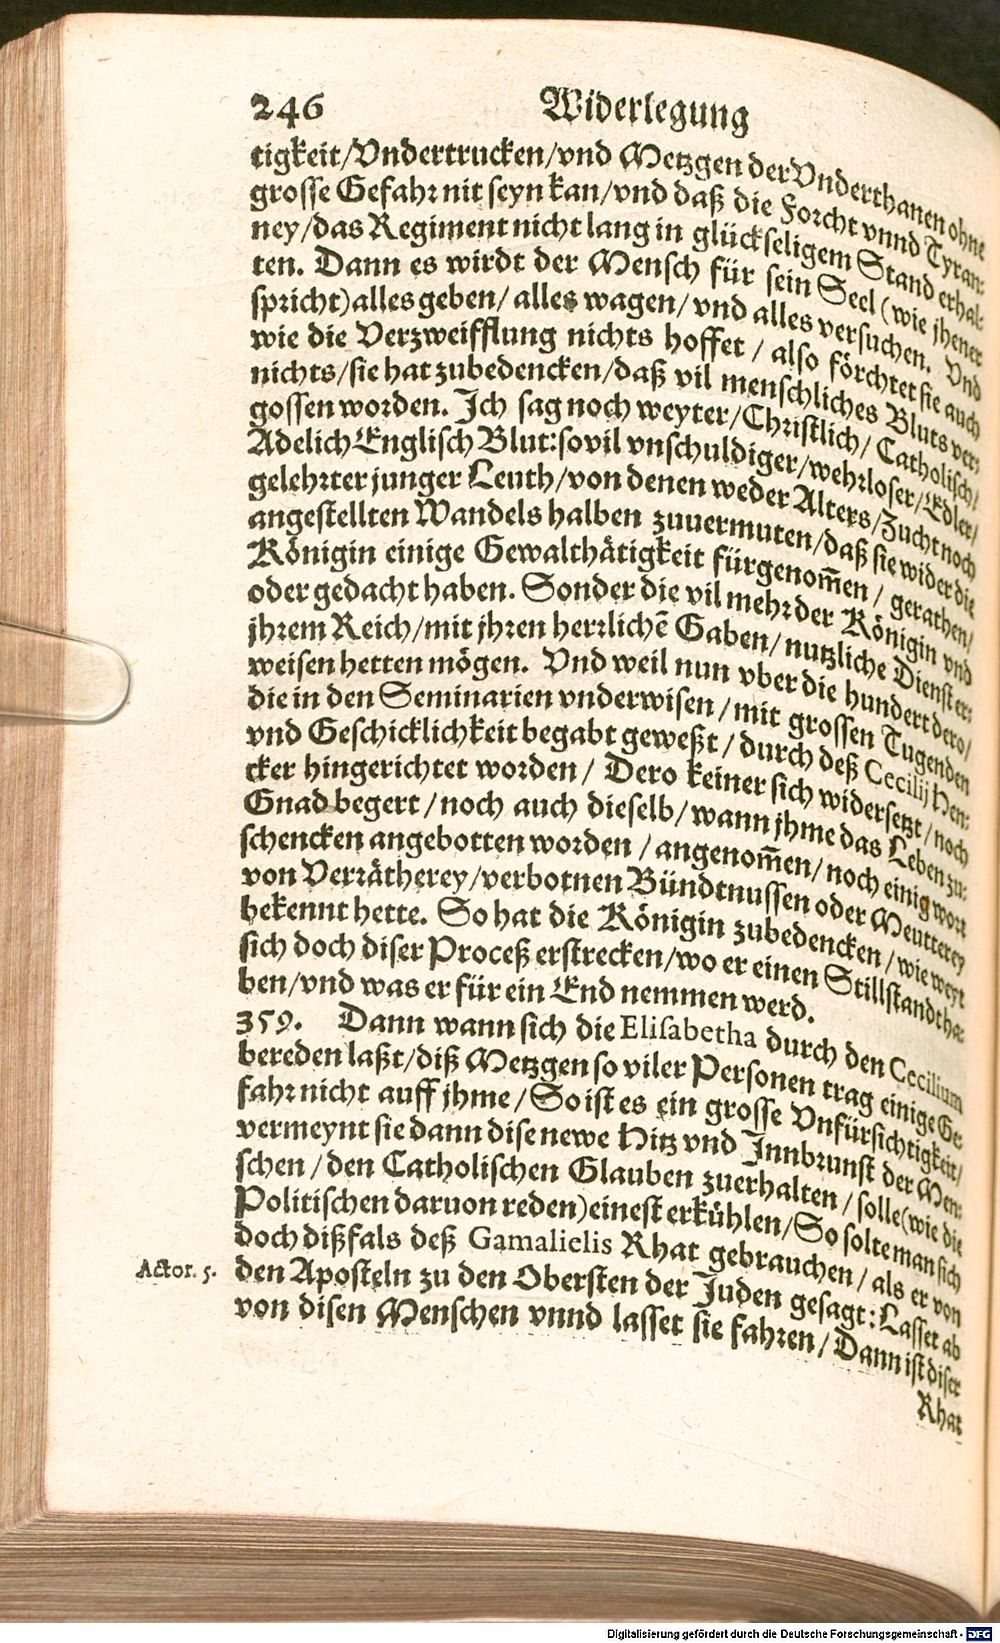 246 Widerlegung
tigkeit/Vndertrucken/vnd Metzgen der Vnderthanen ohne
grosse Gefahr nit seyn kan/vnd daß die Forcht vnnd Tyran-
ney/das Regiment nicht lang in glückseligem Stand erhal-
ten. Dann es wirdt der Mensch für sein Seel (wie jhener
spricht) alles geben/ alles wagen/ vnd alles versuchen. Vnd
wie die Verzweifflung nichts hoffet / also förchtet sie auch
nichts/sie hat zubedencken/daß vil menschliches Bluts ver-
gossen worden. Ich sag noch weyter/Christlich/ Catholisch/
Adelich Englisch Blut: sovil vnschuldiger/wehrloser/Edler/
gelehrter junger Leuth/von denen weder Alters/Zucht noch
angestellten Wandels halben zuuermuten/daß sie wider die
Königin einige Gewalthätigkeit fürgenom̄en / gerathen/
oder gedacht haben. Sonder die vil mehr der Königin vnd
jhrem Reich/mit jhren herrlichē Gaben/ nutzliche Dienst er-
weisen hetten mögen. Vnd weil nun vber die hundert dero/
die in den Seminarien vnderwisen / mit grossen Tugenden
vnd Geschicklichkeit begabt geweßt / durch deß Cecilij Hen-
cker hingerichtet worden/ Dero keiner sich widersetzt / noch
Gnad begert / noch auch dieselb/ wann jhme das Leben zu-
schencken angebotten worden / angenom̄en/ noch einig wort
von Verrätherey/verbotnen Bündtnussen oder Meutterey
bekennt hette. So hat die Königin zubedencken / wie weyt
sich doch diser Proceß erstrecken/wo er einen Stillstandt ha-
ben/vnd was er für ein End nemmen werd.
359. Dann wann sich die Elisabetha durch den Cecilium
bereden laßt/diß Metzgen so viler Personen trag einige Ge-
fahr nicht auff jhme / So ist es ein grosse Vnfürsichtigkeit/
vermeynt sie dann dise newe Hitz vnd Innbrunst der Men-
schen / den Catholischen Glauben zuerhalten / solle (wie die
Politischen daruon reden) einest erkühlen/So solte man sich
doch dißfals deß Gamalielis Rhat gebrauchen / als er von
Actor. 5. den Aposteln zu den Obersten der Juden gesagt: Lasset ab
von disen Menschen vnnd lasset sie fahren / Dann ist diser
Rhat
Digitalisierung gefördert durch die Deutsche Forschungsgemeinschaft - DFG